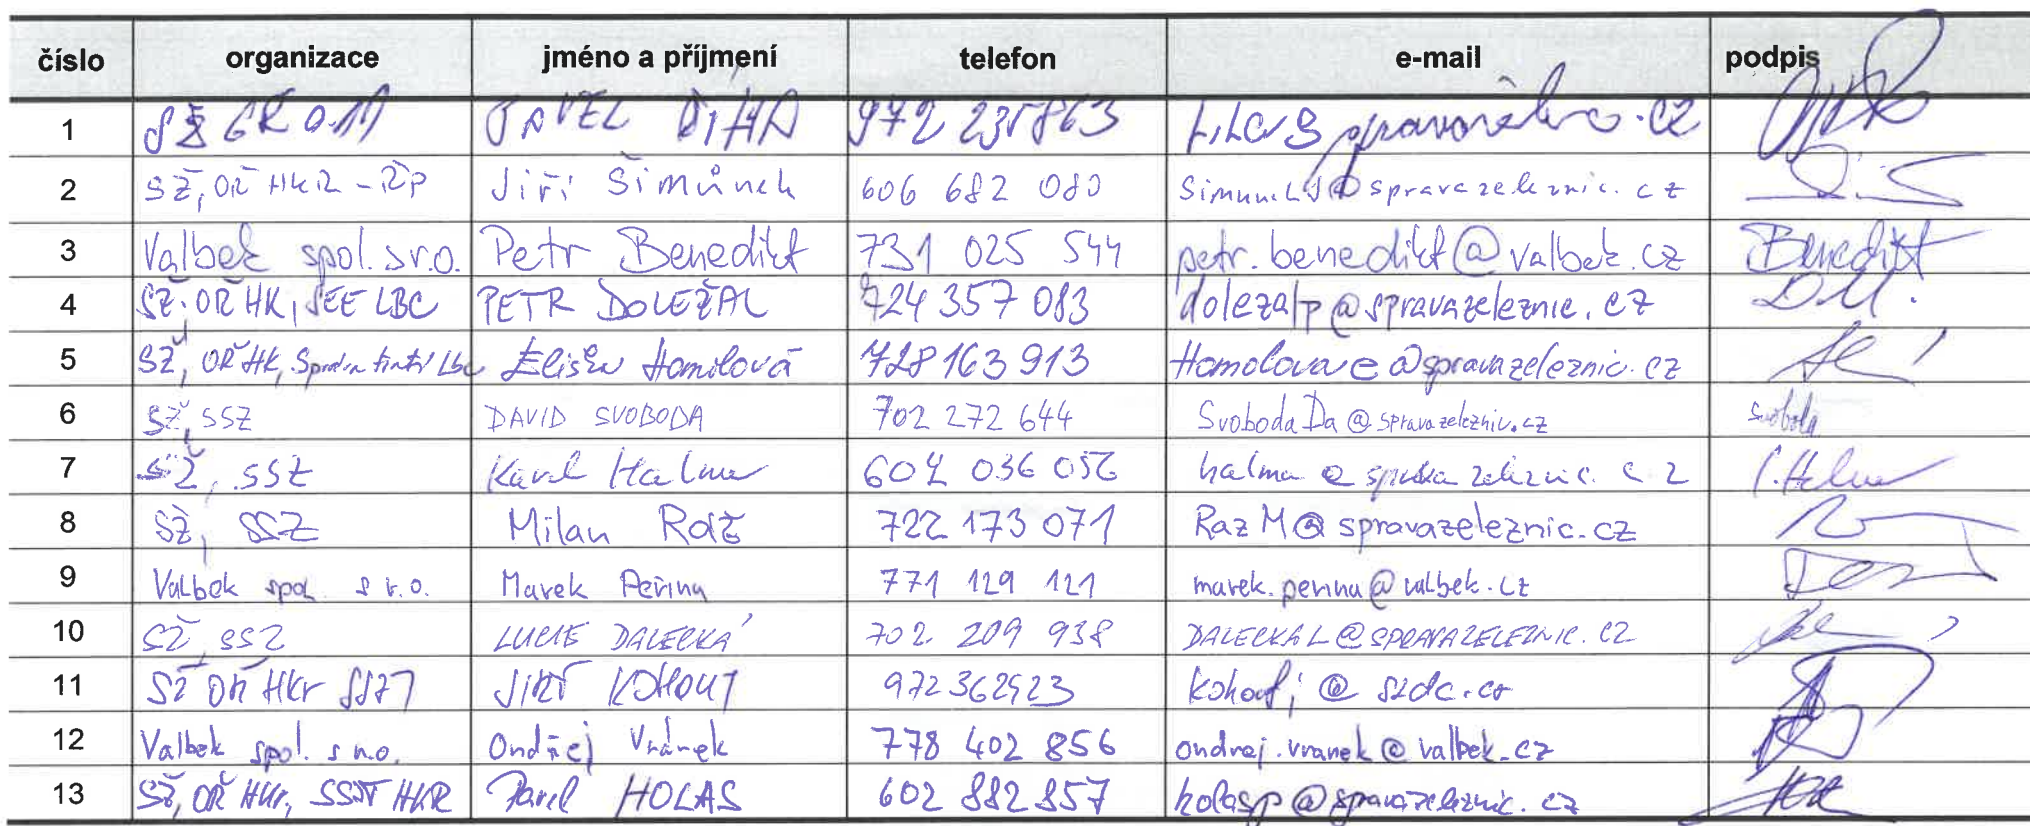 číslo organizace jméno a příjmení telefon e-mail podpis
1 SŽ GŘ O11 PAVEL 972 235 863 @spravazeleznic.cz
2 SŽ, OŘ HKR - ŘP Jiří Šimůnek 606 682 080 SimunekJ@spravazeleznic.cz
3 Valbek spol. s r.o. Petr Benedikt 731 025 544 petr.benedikt@valbek.cz Benedikt
4 SŽ, OŘ HK, SEE LBC PETR DOLEŽAL 724 357 083 dolezalp@spravazeleznic.cz
5 SŽ, OŘ HK, Správa tratí Lbc Eliška Homolová 728 163 913 Homolovae@spravazeleznic.cz
6 SŽ, SSZ DAVID SVOBODA 702 272 644 SvobodaDa@spravazeleznic.cz Svoboda
7 SŽ, SSZ Karel Halma 607 036 056 halma@spravazeleznic.cz
8 SŽ, SSZ Milan Ráž 722 173 071 RazM@spravazeleznic.cz
9 Valbek spol. s r.o. Marek Peřina 771 129 121 marek.perina@valbek.cz
10 SŽ, SSZ LUCIE DALECKÁ 702 209 938 DALECKAL@SPRAVAZELEZNIC.CZ
11 SŽ OŘ HKr SSZT JIŘÍ KOHOUT 972 362 923 Kohoutj@szdc.cz
12 Valbek spol. s r.o. Ondřej Vránek 778 402 856 ondrej.vranek@valbek.cz
13 SŽ, OŘ HKr, SSZT HKR Pavel HOLAS 602 882 857 holasp@spravazeleznic.cz